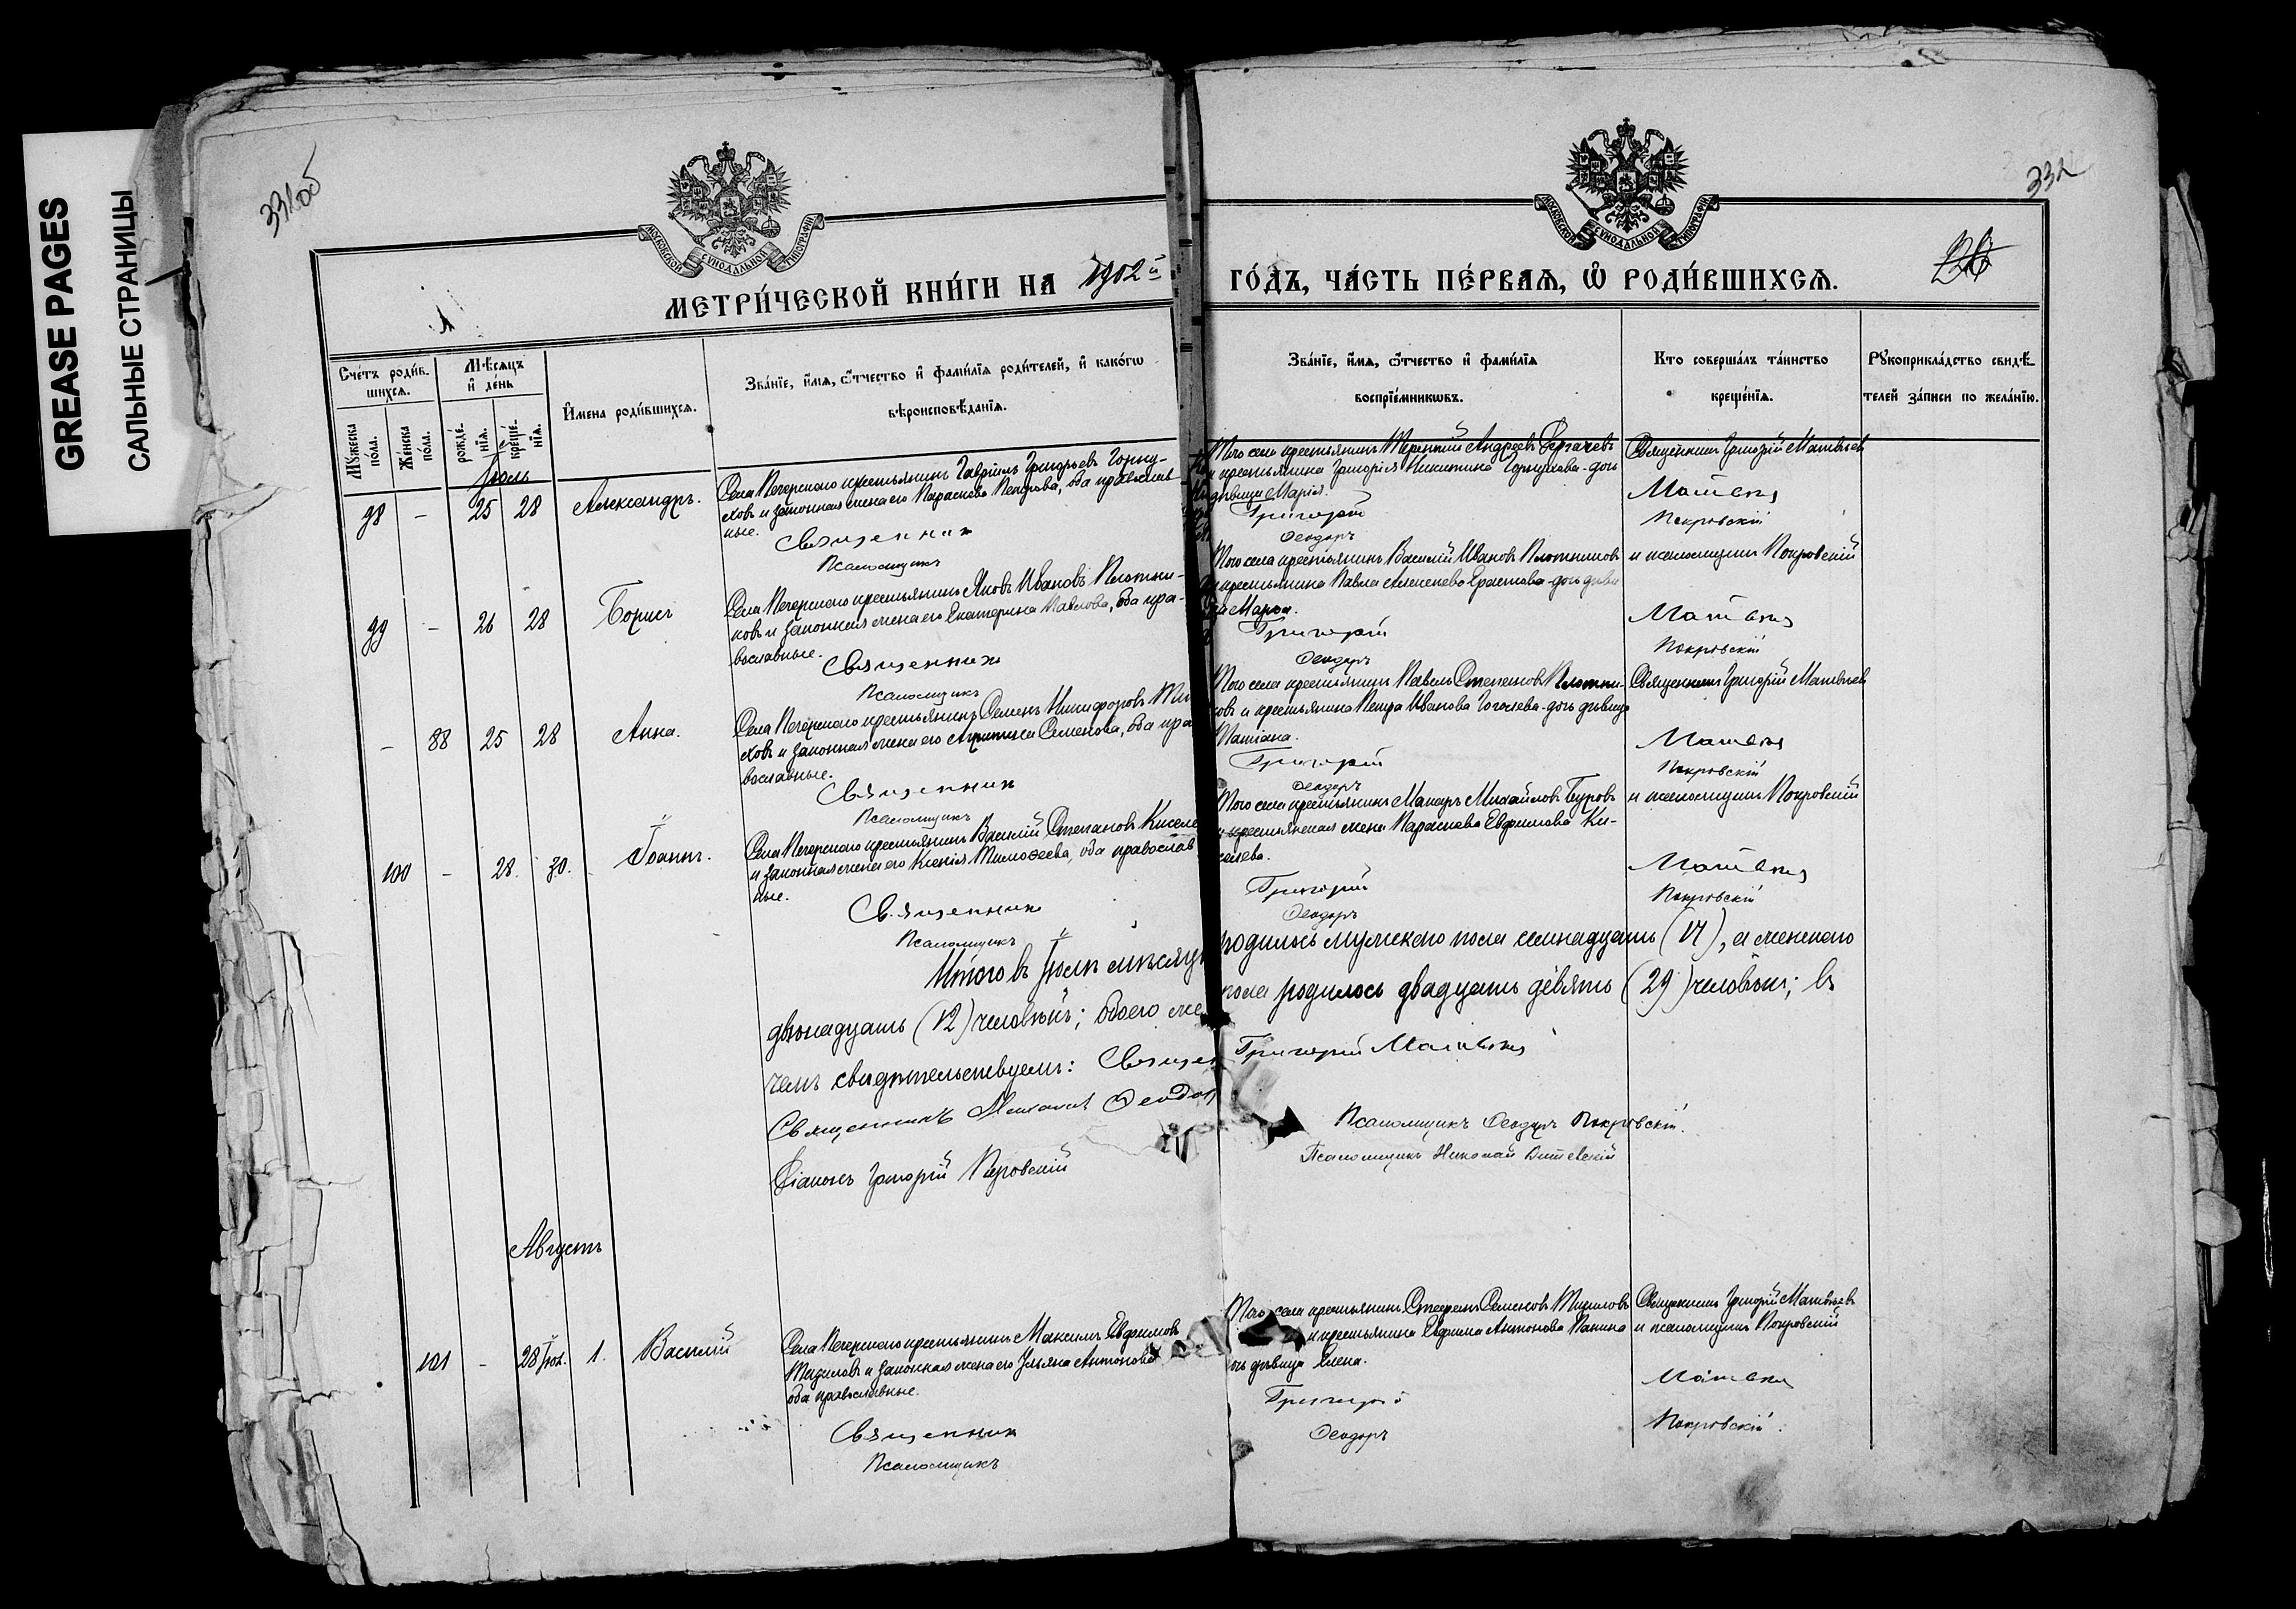 GREASE PAGES
САЛЬНЫЕ СТРАНИЦЫ
331об
332
МОСКОВСКОЙ СУНОДАЛЬНОЙ ТИПОГРАФІИ
МОСКОВСКОЙ СУНОДАЛЬНОЙ ТИПОГРАФІИ
МЕТРИ́ЧЕСКОЙ КНИ́ГИ НА 1902й ГО́ДЪ, ЧА́СТЬ ПЕ́РВАѦ, Ѿ РОДИ́ВШИХСѦ.
Сче́тъ роди́в-
шихсѧ.
Мꙋ́жеска по́ла.
Же́нска по́ла.
Мѣ́сѧцъ и де́нь
рожде́-
нїѧ.
креще́-
нїѧ.
И́мена роди́вшихсѧ.
Зва́нїе, и́мѧ, ѻ́тчество и фами́лїѧ роди́телей, и како́гѡ
вѣроисповѣ́данїѧ.
Зва́нїе, и́мѧ, ѻ́тчество и фами́лїѧ
воспрїе́мникѡвъ.
Кто соверша́лъ та́инство
креще́нїѧ.
Рꙋкоприкла́дство свидѣ́-
телей за́писи по жела́нїю.
Іюль
98 - 25 28 Александръ.
Села Печерскаго крестьянинъ Гавріилъ Григорьевъ Горшу-
ковъ и законная жена его Параскева Петрова, оба православ
ные.
Священникъ
Псаломщикъ
Того села крестьянинъ Терентий Андреевъ Сергачевъ
и крестьянина Григорія Никитина Горшукова дочь
дѣвица Марія.
Григорій
Ѳеодоръ
Священникъ Григорій Матвѣевъ
Матвѣевъ
Покровскій
99 - 26 28 Борисъ
Села Печерскаго крестьянинъ Яковъ Ивановъ Плотни-
ковъ и законная жена его Екатерина Павлова, оба пра-
вославные.
Священникъ
Псаломщикъ
Того села крестьянинъ Василій Ивановъ Плотниковъ
и крестьянина Павла Алексеева дочь дѣви
ца Марья.
Григорій
Ѳеодоръ
и псаломщикъ Покровскій
Матвѣевъ
Покровскій
- 88 25 28 Анна.
Села Печерскаго крестьянинъ Семенъ Никифоровъ
ховъ и законная жена его Семенова, оба пра
вославные.
Священникъ
Псаломщикъ
Того села крестьянинъ Павелъ Степановъ Плотни-
ковъ и крестьянина Петра Иванова дочь дѣвица
Татіана.
Григорій
Ѳеодоръ
Священникъ Григорій Матвѣевъ
Матвѣевъ
Покровскій
100 - 28. 30. Іоаннъ.
Села Печерскаго крестьянинъ Василій Степановъ Киселе
и законная жена его Ксенія Тимоѳеева, оба православ
ные.
Священникъ
Псаломщикъ
Того села крестьянинъ Макаръ Михайловъ Буровъ
и крестьянская жена Параскева Евфимова Ки-
селева.
Григорій
Ѳеодоръ
и псаломщикъ Покровскій
Матвѣевъ
Покровскій
Итого въ Іюлѣ мѣсяцѣ родилось мужескаго пола семнадцать (17), а женскаго
двѣнадцать (12) человѣкъ; обоего же пола родилось двадцать девять (29) человѣкъ; въ
чемъ свидѣтельствуемъ: Священ Григорій Матвѣевъ
Священникъ Ѳеодор
Псаломщикъ Ѳеодоръ Покровскій.
Діаконъ Григорій
Псаломщикъ Николай
Августъ
101 - 28 Іюл. 1. Василій
Села Печерскаго крестьянинъ Максимъ Евфимовъ
и законная жена его Ульяна Антонова
оба православные.
Священникъ
Псаломщикъ
Того села крестьянинъ Стефанъ Семеновъ
и крестьянина Евфима Антонова Панина
дочь дѣвица Елена.
Григорій
Ѳеодоръ
Священникъ Григорій Матвѣевъ
и псаломщикъ Покровскій
Матвѣевъ
Покровскій